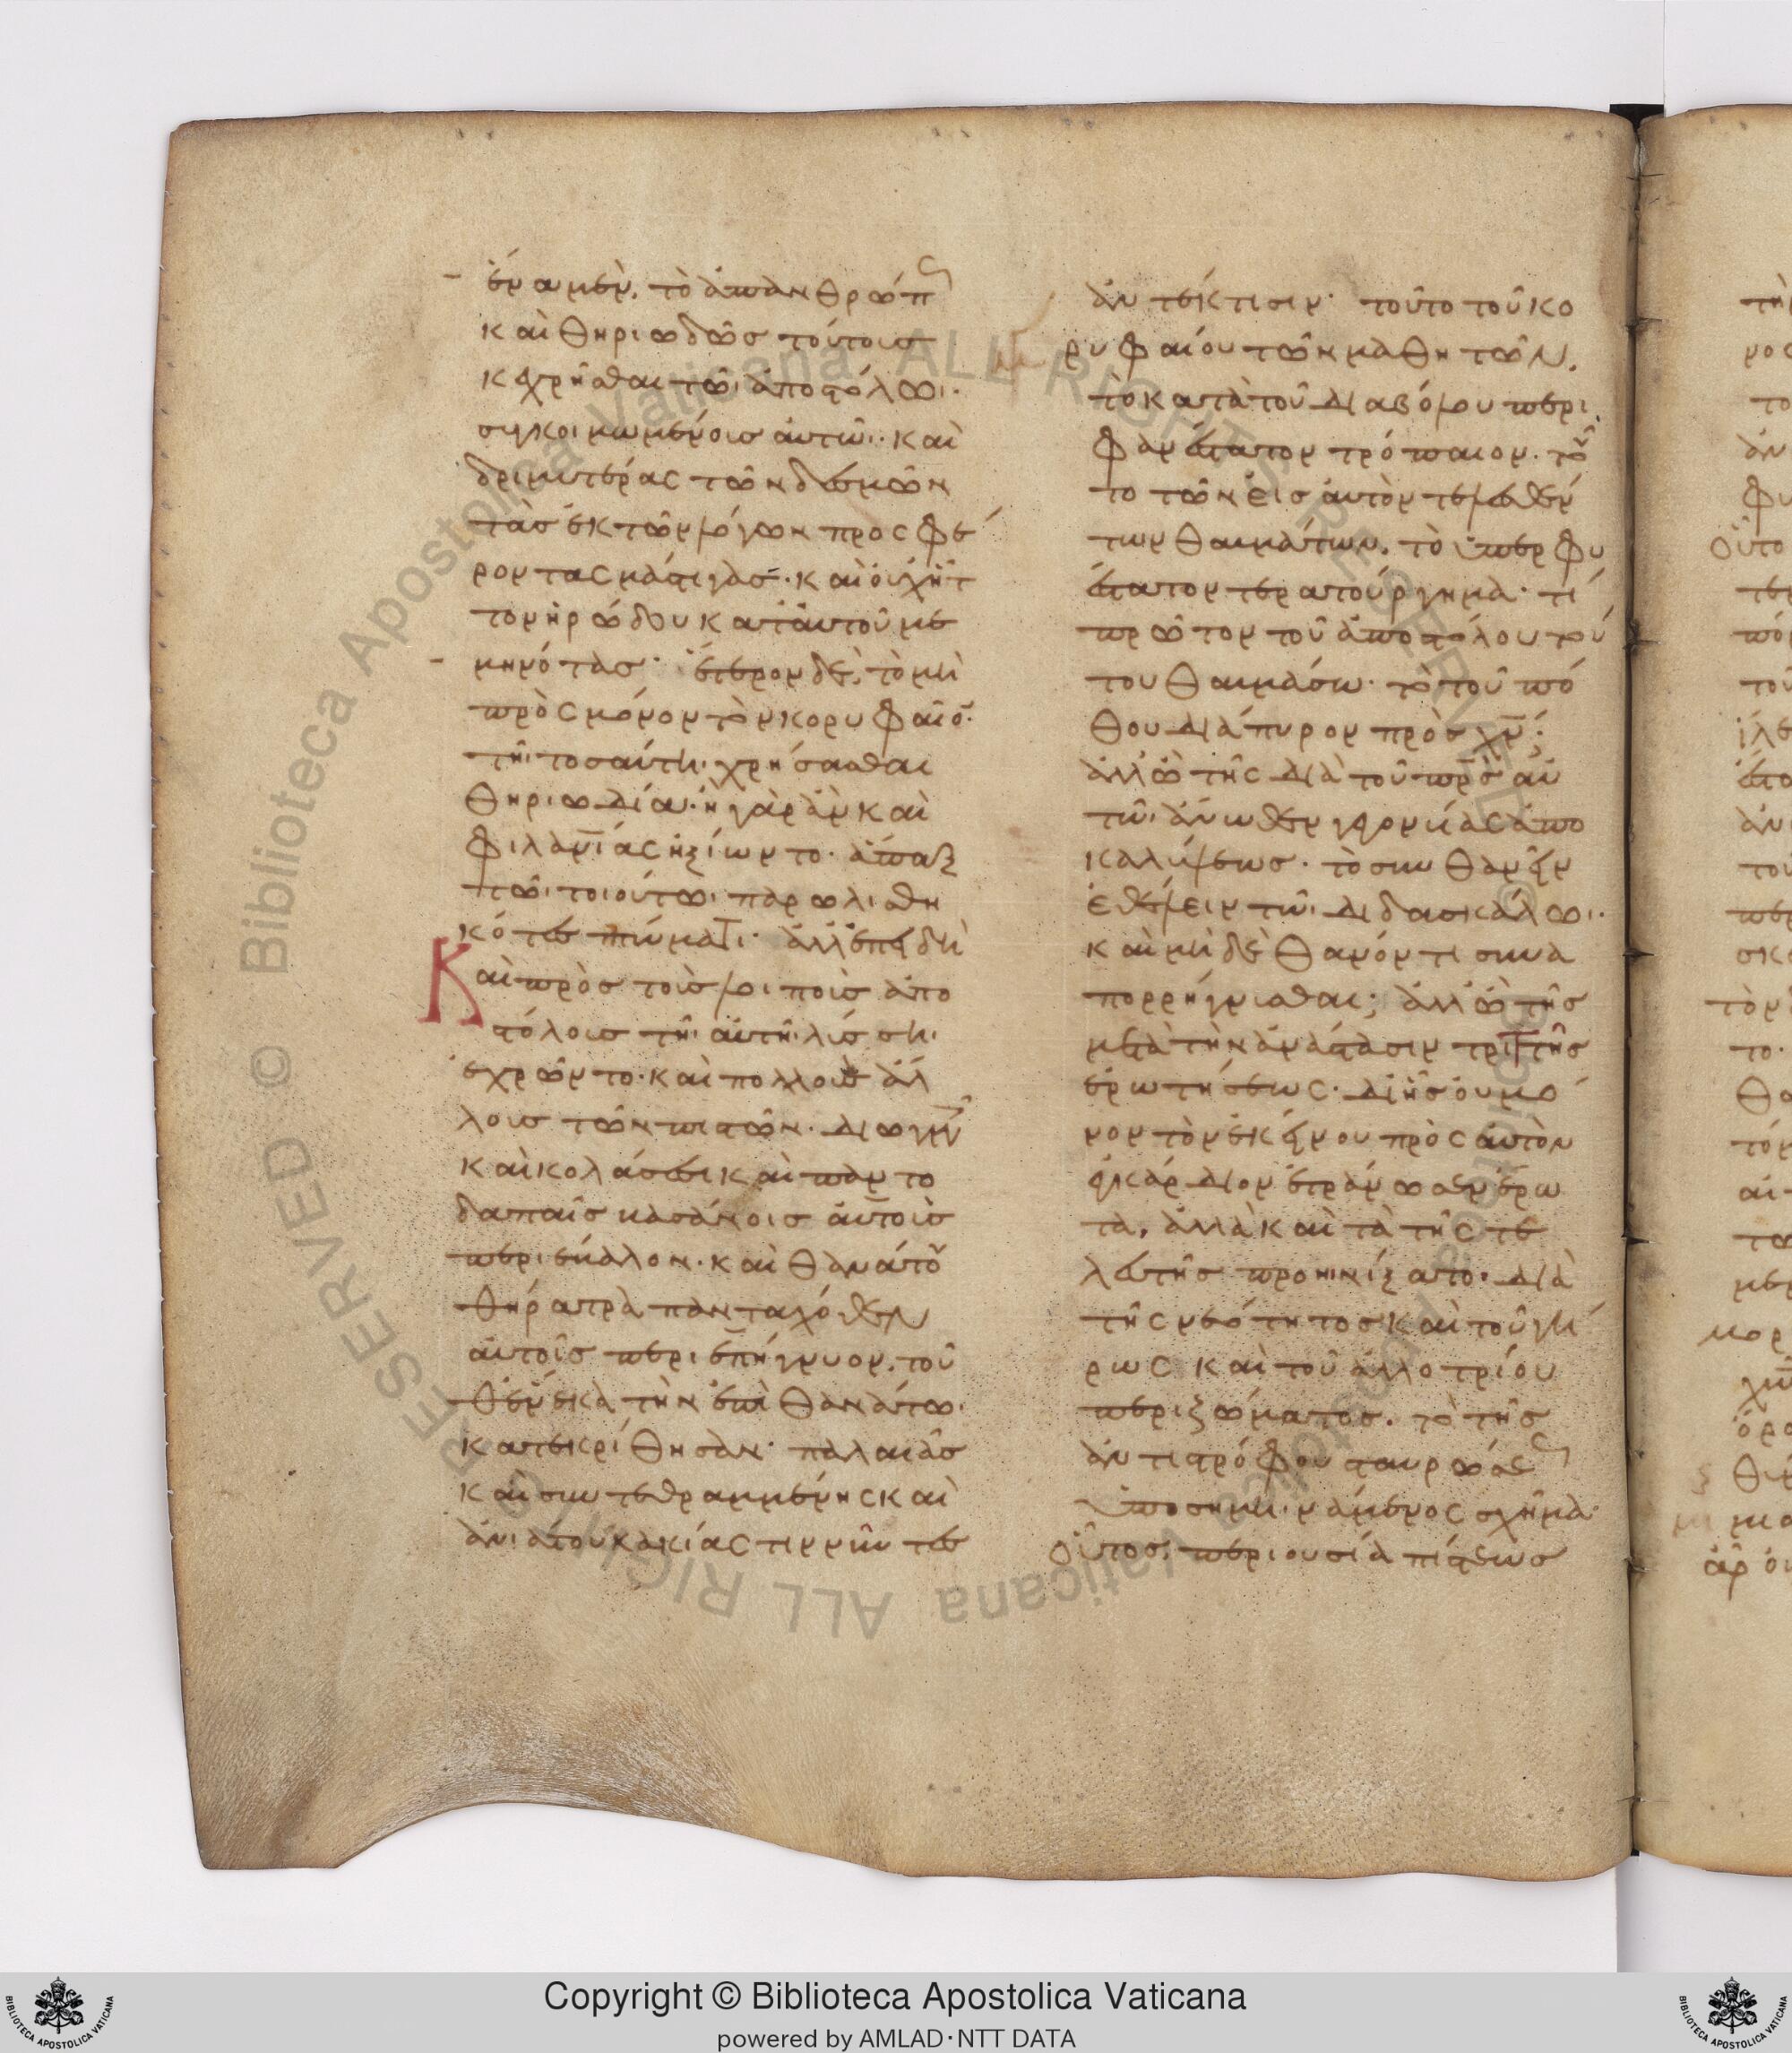 ἓν μὲν, τὸ ἀπανθρώπως
καὶ θηριωδῶσ τούτοισ
κεχρῆσθαι τῶι ἀποστόλωι·
συγκοιμωμένοισ αὐτῶι· καὶ
δριμυτέρας τῶν δεσμῶν
τὰσ ἐκ τῶν λόγων προςφέ
ροντας μάστιγασ· καὶ οὐχ ἧτ
τον ἡρώδου κατ' αὐτοῦ με
μηνότασ· ἕτερον δὲ, τὸ μὴ
πρὸς μόνον τὸν κορυφαῖον·
τῆι τοσαύτηι χρήσασθαι
θηριωδίαι· ἦ γὰρ ἂν καὶ
φιλανίας ἠξίωντο· ἅπαξ
τῶι τοιούτωι παρωλισθη
κότεσ πτώματι· ἀλλ' ἐπειδὴ
Καὶ πρὸσ τοῖσ λοιποῖσ ἀπο
στόλοισ τῆι αὐτῆι λύσσηι
ἐχρῶντο· καὶ πολλοῖσ ἄλ
λοισ τῶν πιστῶν· διωγμῶν
καὶ κολάσεσι καὶ παντο
δαπαῖσ βασάνοισ αὐτοῖσ
περιέβαλον· καὶ θανάτου
θήρατρα πανταχόθεν
αὐτοῖσ περιεπήγνυον, τοῦ
θ' ἕνεκα τὴν ἐπὶ θανάτωι
κατεκρίθησαν· παλαιᾶσ
καὶ συντεθραμμένης καὶ
ἀνιάτου κακίας τιννῦντεσ
ἀντέκτισιν· τοῦτο τοῦ κο
ρυφαίου τῶν μαθητῶν,
τὸ κατὰ τοῦ διαβόλου περι
φανέστατον τρόπαιον· τοῦ
το τῶν εἰσ αὐτὸν τελεσθέν
των θαυμάτων, τὸ ὑπερφυ
έστατον τερατούργημα· τί
πρῶτον τοῦ ἀποστόλου τού
του θαυμάσω· τὸ τοῦ πό
θου διάπυρον πρὸσ χν;
ἀλλ' ὁ τῆς διὰ τοῦ πρσ αὐ
τῶι ἄνωθεν γεγονυίας ἀπο
καλύψεωσ· τὸ συνθανεῖν
ἐθέλειν τῶι διδασκάλωι·
καὶ μὴ δὲ θανόντι συνα
πορρήγνυσθαι; ἀλλ' ὁ τῆσ
μετὰ τὴν ἀνάστασιν τριττῆσ
ἐρωτήσεως· δι' ἧσ οὐ μό
νον τὸν ἐκείνου πρὸς αὐτὸν
ἐγκάρδιον ἐτράνωσεν ἔρω
τα, ἀλλὰ καὶ τὰ τῆς τε
λευτῆσ προηινίξατο· διὰ
τῆς νεότητοσ καὶ τοῦ γή
ρως καὶ τοῦ ἀλλοτρίου
περιζώματοσ, τὸ τῆσ
ἀντιστρόφου σταυρώσεως
ὑποσημηινάμενος σχῆμα·
Οὗτοσ, περιουσία πίστεωσ